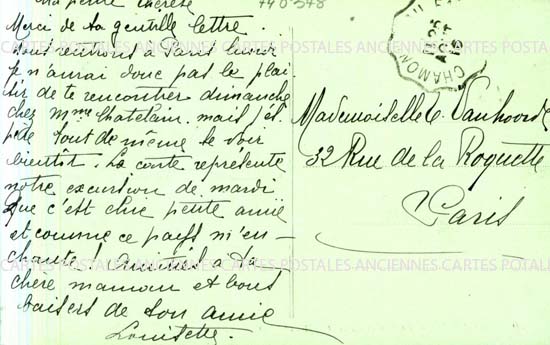 Ma petite Thérèse
740-348
Merci de ta gentille lettre.
nous rentrons à Paris lundi
je n'aurai donc pas le plai
sir de te rencontrer dimanche
chez Mme Chatelain. mais j'es
père tout de même te voir
bientot. La carte représente
notre excursion de mardi
que c'est chic petite amie
et comme ce pays m'en-
chante! Amitiés à ta
chère maman et bons
baisers de ton amie
Louisette.
CHAMON
Mademoiselle
32 Rue de la Roquette
Paris
CARTES POSTALES ANCIENNES CARTES POSTALES ANCIENNES CARTES POTALES
CARTES POSTALES ANCIENNES CARTES POSTALES ANCIENNES CARTES POTALE